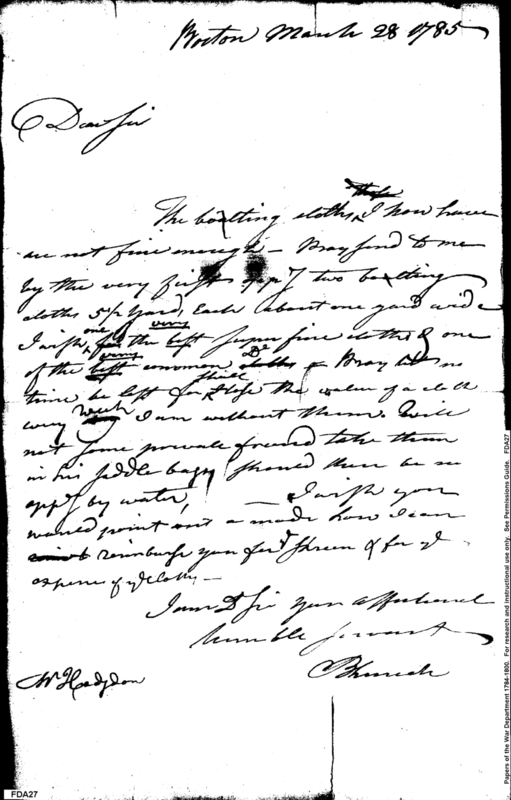 Boston March 28 1785
Dear Sir
these
The bolting cloths I now have
are not fine enough — Pray send to me
by the very first oppy two bolting
cloths 5½ yards, Each about one yard wide
one very
I wish, for the best super fine cloths & one
very De
of the best common cloths — Pray let no
time be lost for I shall lose the value of a cloth
every week I am without them. Will
not some private friend take them
in his saddle bags should there be no
oppy by water, — I wish you
would point out a mode how I can
reimburse you for ye screen & for ye
expence of ye cloths —
I am D Sir your affectionate
humble servant
W Hodgdon
FDA27
Papers of the War Department 1784-1800. For research and instructional use only. See Permissions Guide. FDA27